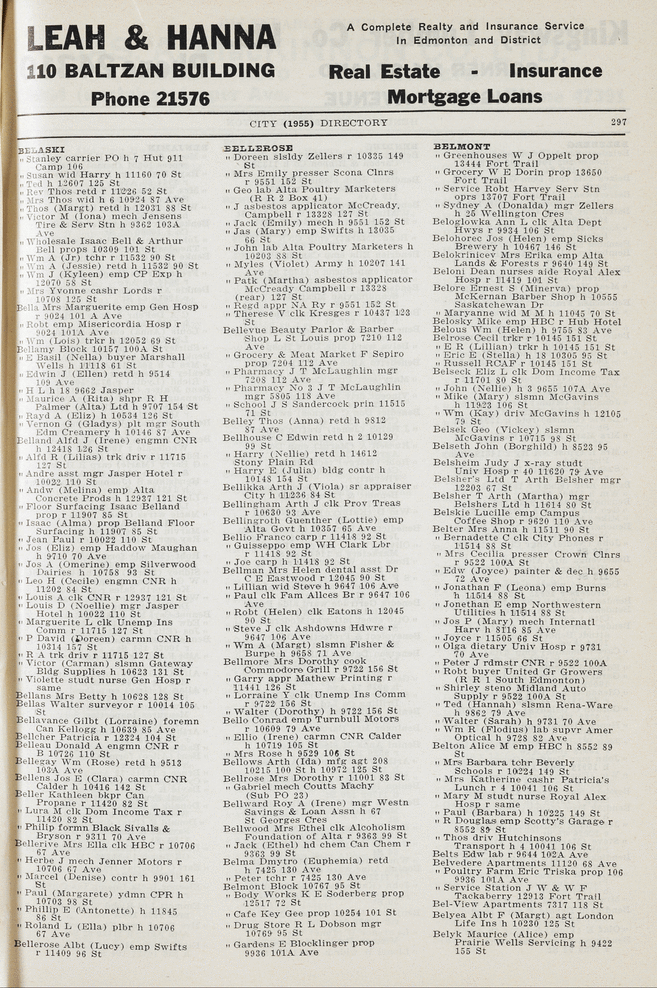 LEAH & HANNA
110 BALTZAN BUILDING
Phone 21576
A Complete Realty and Insurance Service
In Edmonton and District
Real Estate - Insurance
Mortgage Loans
CITY (1955) DIRECTORY 297
BELASKI
" Stanley carrier PO h 7 Hut 911
Camp 106
" Susan wid Harry h 11160 70 St
" Ted h 12607 125 St
" Rev Thos retd r 11226 52 St
" Mrs Thos wid h 6 10924 87 Ave
" Thos (Margt) retd h 12031 88 St
" Victor M (Iona) mech Jensens
Tire & Serv Stn h 9362 103A
Ave
" Wholesale Isaac Bell & Arthur
Bell props 10309 101 St
" Wm A (Jr) tchr r 11532 90 St
" Wm A (Jessie) retd h 11532 90 St
" Wm J (Kyleen) emp CP Exp h
12070 58 St
" Mrs Yvonne cashr Lords r
10708 125 St
Bella Mrs Marguerite emp Gen Hosp
r 9024 101 A Ave
" Robt emp Misericordia Hosp r
9024 101A Ave
" Wm (Lois) trkr h 12052 69 St
Bellamy Block 10157 100A St
" E Basil (Nella) buyer Marshall
Wells h 11118 61 St
" Edwin J (Ellen) retd h 9514
109 Ave
" H L h 18 9662 Jasper
" Maurice A (Rita) shpr R H
Palmer (Alta) Ltd h 9707 154 St
" Rayd A (Eliz) h 10534 126 St
" Vernon G (Gladys) plt mgr South
Edm Creamery h 10146 87 Ave
Belland Alfd J (Irene) engmn CNR
h 12418 126 St
" Alfd R (Lilias) trk driv r 11715
127 St
" Andre asst mgr Jasper Hotel r
10022 110 St
" Andw (Melina) emp Alta
Concrete Prods h 12937 121 St
" Floor Surfacing Isaac Belland
prop r 11907 85 St
" Isaac (Alma) prop Belland Floor
Surfacing h 11907 85 St
" Jean Paul r 10022 110 St
" Jos (Eliz) emp Haddow Maughan
h 9710 70 Ave
" Jos A (Omerine) emp Silverwood
Dairies h 10758 93 St
" Leo H (Cecile) engmn CNR h
11202 84 St
" Louis A clk CNR r 12937 121 St
" Louis D (Noellie) mgr Jasper
Hotel h 10022 110 St
" Marguerite L clk Unemp Ins
Comm r 11715 127 St
" P David (Doreen) carmn CNR h
10314 157 St
" R A trk driv r 11715 127 St
" Victor (Carman) slsmn Gateway
Bldg Supplies h 10623 131 St
" Violette studt nurse Gen Hosp r
same
Bellans Mrs Betty h 10628 128 St
Bellas Walter surveyor r 10014 105
St
Bellavance Gilbt (Lorraine) foremn
Can Kellogg h 10639 85 Ave
Bellcher Patricia r 12324 104 St
Belleau Donald A engmn CNR r
B 10726 110 St
Bellegay Wm (Rose) retd h 9513
103A Ave
Bellens Jos E (Clara) carmn CNR
Calder h 10416 142 St
Beller Kathleen bkpr Can
Propane r 11420 82 St
" Lura M clk Dom Income Tax r
11420 82 St
" Philip formn Black Sivalls &
Bryson r 9311 70 Ave
Bellerive Mrs Ella clk HBC r 10706
67 Ave
" Herbe J mech Jenner Motors r
10706 67 Ave
" Marcel (Denise) contr h 9901 161
St
" Paul (Margarete) ydmn CPR h
10703 98 St
" Phillip E (Antonette) h 11845
86 St
" Roland L (Ella) plbr h 10706
67 Ave
Bellerose Albt (Lucy) emp Swifts
r 11409 96 St
BELLEROSE
" Doreen slsldy Zellers r 10335 149
St
" Mrs Emily presser Scona Clnrs
r 9551 152 St
" Geo lab Alta Poultry Marketers
(R R 2 Box 41)
" J asbestos applicator McCready,
Campbell r 13328 127 St
" Jack (Emily) mech h 9551 152 St
" Jas (Mary) emp Swifts h 13035
66 St
" John lab Alta Poultry Marketers h
10203 88 St
" Myles (Violet) Army h 10207 141
Ave
" Patk (Martha) asbestos applicator
McCready Campbell r 13328
(rear) 127 St
" Regd appr NA Ry r 9551 152 St
" Therese V clk Kresges r 10437 123
St
Bellevue Beauty Parlor & Barber
Shop L St Louis prop 7210 112
Ave
" Grocery & Meat Market F Sepiro
prop 7204 112 Ave
" Pharmacy J T McLaughlin mgr
7208 112 Ave
" Pharmacy No 3 J T McLaughlin
mgr 5805 118 Ave
" School J S Sandercock prin 11515
71 St
Belley Thos (Anna) retd h 9812
87 Ave
Bellhouse C Edwin retd h 2 10129
99 St
" Harry (Nellie) retd h 14612
Stony Plain Rd
" Harry E (Julia) bldg contr h
10148 154 St
Bellikka Arth J (Viola) sr appraiser
City h 11236 84 St
Bellingham Arth J clk Prov Treas
r 10630 93 Ave
Bellingroth Guenther (Lottie) emp
Alta Govt h 10357 65 Ave
Bellio Franco carp r 11418 92 St
" Guisseppo emp WH Clark Lbr
r 11418 92 St
" Joe carp h 11418 92 St
Bellman Mrs Helen dental asst Dr
C E Eastwood r 12045 90 St
" Lillian wid Steve h 9647 106 Ave
" Paul clk Fam Allces Br r 9647 106
Ave
" Robt (Helen) clk Eatons h 12045
90 St
" Steve J clk Ashdowns Hdwre r
9647 106 Ave
" Wm A (Margt) slsmn Fisher &
Burpe h 9658 71 Ave
Bellmore Mrs Dorothy cook
Commodore Grill r 9722 156 St
" Garry appr Mathew Printing r
11441 126 St
" Lorraine Y clk Unemp Ins Comm
r 9722 156 St
" Walter (Dorothy) h 9722 156 St
Bello Conrad emp Turnbull Motors
r 10609 79 Ave
" Ellio (Irene) carmn CNR Calder
h 10719 105 St
" Mrs Rose h 9529 106 St
Bellows Arth (Ida) mfg agt 208
10215 100 St h 10972 125 St
Bellrose Mrs Dorothy r 11001 83 St
" Gabriel mech Coutts Machy
(Sub PO 23)
Bellward Roy A (Irene) mgr Westn
Savings & Loan Assn h 67
St Georges Cres
Bellwood Mrs Ethel clk Alcoholism
Foundation of Alta r 9363 99 St
" Jack (Ethel) hd chem Can Chem r
9363 99 St
Belma Dmytro (Euphemia) retd
h 7425 130 Ave
" Peter tchr r 7425 130 Ave
Belmont Block 10767 95 St
" Body Works K E Soderberg prop
12517 72 St
" Cafe Key Gee prop 10254 101 St
" Drug Store R L Dobson mgr
10769 95 St
" Gardens E Blocklinger prop
9936 101A Ave
BELMONT
" Greenhouses W J Oppelt prop
13444 Fort Trail
" Grocery W E Dorin prop 13650
Fort Trail
" Service Robt Harvey Serv Stn
oprs 13707 Fort Trail
" Sydney A (Donalda) mgr Zellers
h 25 Wellington Cres
Beloglowka Ann L clk Alta Dept
Hwys r 9934 106 St
Belohorec Jos (Helen) emp Sicks
Brewery h 10467 146 St
Belokrinicev Mrs Erika emp Alta
Lands & Forests r 9640 149 St
Beloni Dean nurses aide Royal Alex
Hosp r 11419 101 St
Belore Ernest S (Minerva) prop
McKernan Barber Shop h 10555
Saskatchewan Dr
" Maryanne wid M M h 11045 70 St
Belosky Mike emp HBC r Hub Hotel
Belous Wm (Helen) h 9755 83 Ave
Belrose Cecil trkr r 10145 151 St
" E R (Lillian) trkr h 10145 151 St
" Eric E (Stella) h 18 10305 95 St
" Russell RCAF r 10145 151 St
Belseck Eliz L clk Dom Income Tax
r 11701 80 St
" John (Nellie) h 3 9655 107A Ave
" Mike (Mary) slsmn McGavins
h 11923 106 St
" Wm (Kay) driv McGavins h 12105
79 St
Belsek Geo (Vickey) slsmn
McGavins r 10715 98 St
Belseth John (Borghild) h 8523 95
Ave
Belsheim Judy J x-ray studt
Univ Hosp r 40 11620 79 Ave
Belsher's Ltd T Arth Belsher mgr
12203 67 St
Belsher T Arth (Martha) mgr
Belshers Ltd h 11614 80 St
Belskie Lucille emp Campus
Coffee Shop r 9620 110 Ave
Belter Mrs Anna h 11511 90 St
" Bernadette C clk City Phones r
11514 88 St
" Mrs Cecilia presser Crown Clnrs
r 9522 100A St
" Edw (Joyce) painter & dec h 9655
72 Ave
" Jonathan F (Leona) emp Burns
h 11514 88 St
" Jonethan E emp Northwestern
Utilities h 11514 88 St
" Jos P (Mary) mech Internatl
Harv h 8716 85 Ave
" Joyce r 11505 66 St
" Olga dietary Univ Hosp r 9731
70 Ave
" Peter J rdmstr CNR r 9522 100A
" Robt buyer United Gr Growers
(R R 1 South Edmonton)
" Shirley steno Midland Auto
Supply r 9522 100A St
" Ted (Hannah) slsmn Rena-Ware
h 9862 79 Ave
" Walter (Sarah) h 9731 70 Ave
" Wm R (Flodius) lab supvr Amer
Optical h 9728 82 Ave
Belton Alice M emp HBC h 8552 89
St
" Mrs Barbara tchr Beverly
Schools r 10224 149 St
" Mrs Katherine cashr Patricia's
Lunch r 4 10041 106 St
" Mary M studt nurse Royal Alex
Hosp r same
" Paul (Barbara) h 10225 149 St
" R Douglas emp Scotty's Garage r
8552 89 St
" Thos driv Hutchinsons
Transport h 4 10041 106 St
Belts Edw lab r 9644 102A Ave
Belvedere Apartments 11120 68 Ave
" Poultry Farm Eric Triska prop 106
9936 101A Ave
" Service Station J W & W F
Tackaberry 12913 Fort Trail
Bel-View Apartments 7317 118 St
Belyea Albt F (Margt) agt London
Life Ins h 10230 125 St
Belyk Maurice (Alice) emp
Prairie Wells Servicing h 9422
155 St